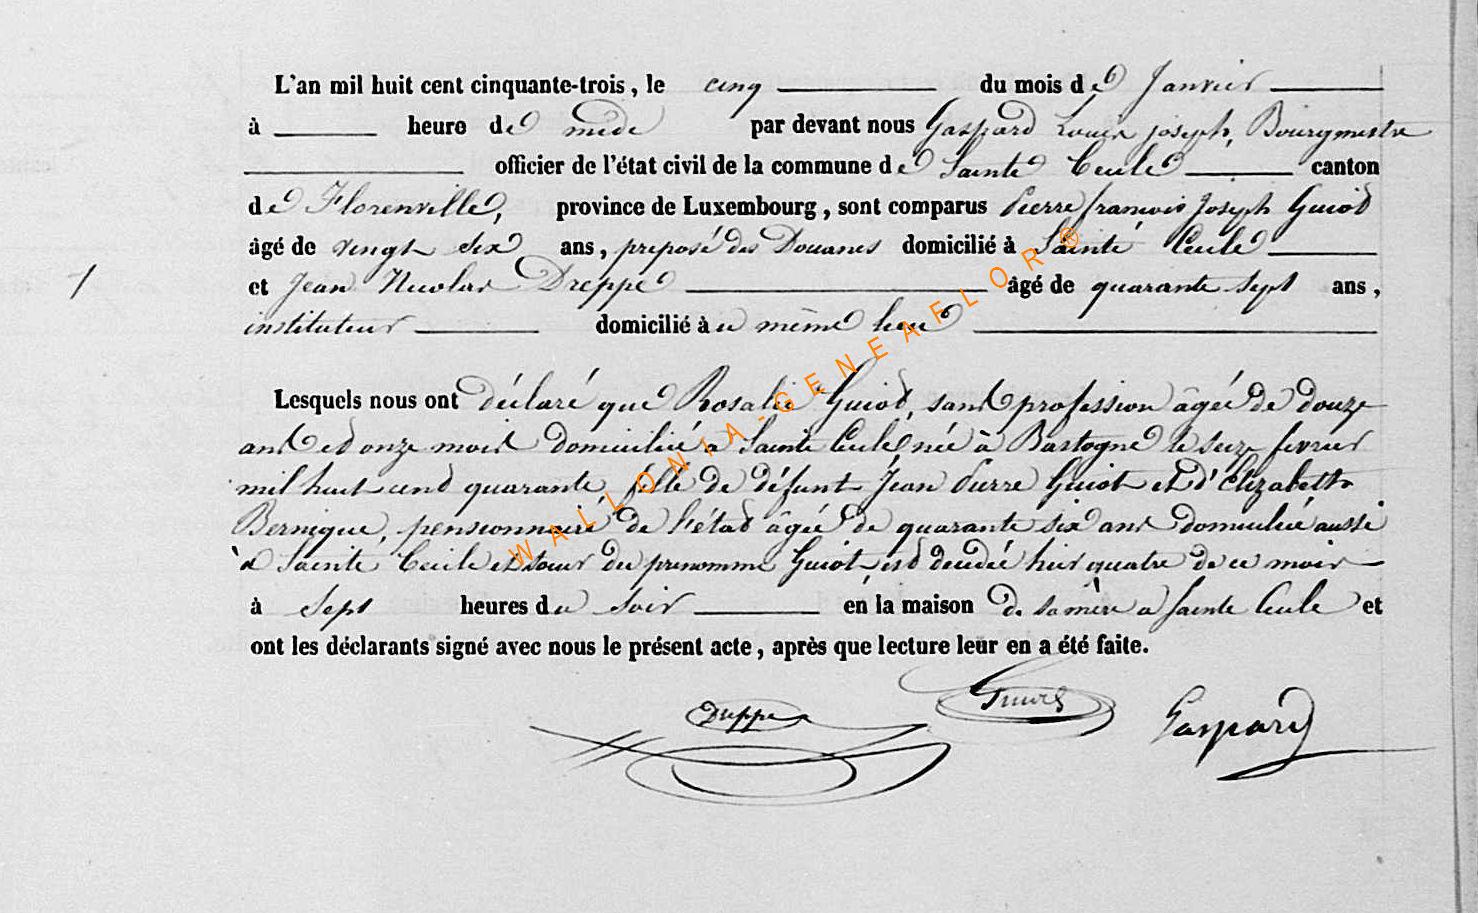 L'an mil huit cent cinquante-trois, le cinq du mois de Janvier
à heure de midi par devant nous Gaspard Louis joseph, Bourgmestre
officier de l'état civil de la commune de Sainte Cecile canton
de Florenville, province de Luxembourg, sont comparus Pierre françois Joseph Guiot
âgé de vingt six ans, preposé des Douanes domicilié à Sainte Cecile
1 et Jean Nicolas Dreppe âgé de quarante sept ans,
instituteur domicilié à ce même lieu
Lesquels nous ont déclaré que Rosalie Guiot, sans profession âgée de douze
ans et onze mois domiciliée a Sainte Cecile née à Bastogne le seize fevrier
mil huit cent quarante, fille de défunt Jean Pierre Guiot et d'Elizabeth
Bernique, pensionnaire de l'état âgée de quarante six ans domiciliée aussi
à Sainte Cecile et soeur du prenommé Guiot, est decedée hier quatre de ce mois
à sept heures du soir en la maison de sa mère a Sainte Cecile et
ont les déclarants signé avec nous le présent acte, après que lecture leur en a été faite.
Dreppe Guiot Gaspard
WALLONIA-GENEAFLOR®